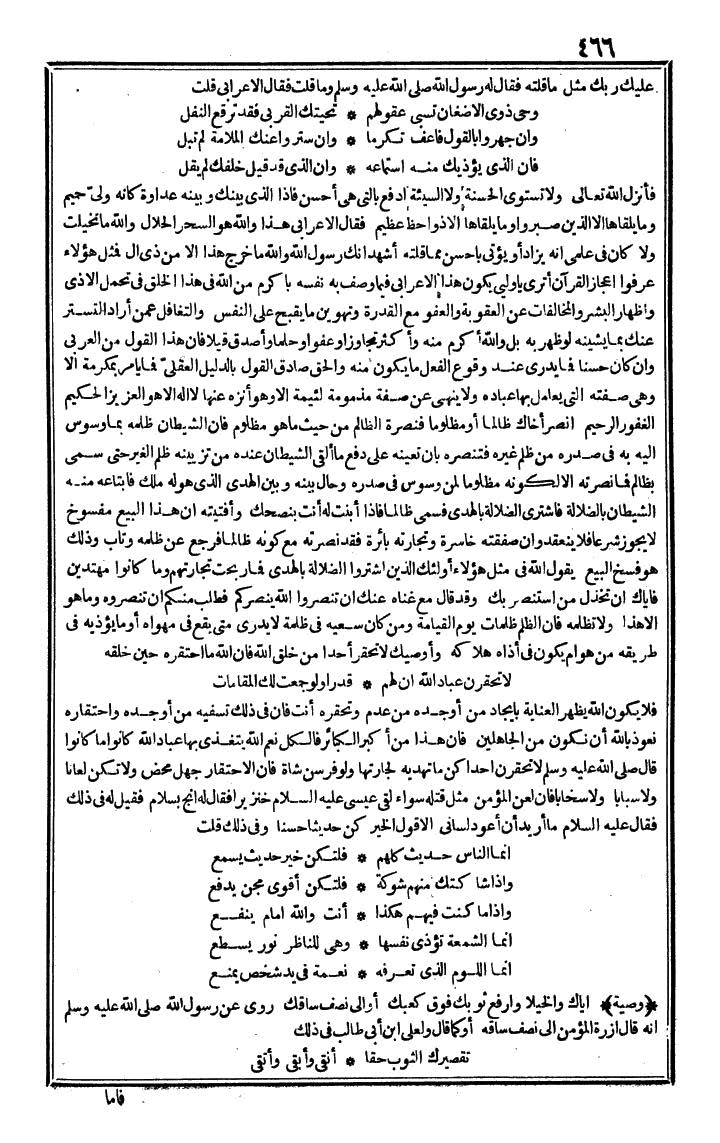 ٤٦٦
عليك ربك مثل ماقلته فقال له رسول الله صلى الله عليه وسلم وما قلت فقال الاعرابى قلت
وحى ذوى الاضغان تسبى عقولهم * تحيتك القربى فقد ترقع النفل
وان جهروا بالقول فاعف تكرما * وان ستروا عنك الملامة لم تبل
فان الذى يؤذيك منه استماعه * وان الذى قد قيل خلفك لم يقل
فأنزل الله تعالى ولا تستوى الحسنة ولا السيئة ادفع بالتى هى أحسن فاذا الذى بينك وبينه عداوة كانه ولىّ حميم
وما يلقاها الا الذين صبروا وما يلقاها الا ذو حظ عظيم فقال الاعرابى هذا والله هو السحر الحلال والله ما تخيلت
ولا كان فى علمى انه يزاد أو يؤتى باحسن مما قلته أشهد انك رسول الله والله ما خرج هذا الا من ذى ال فمثل هؤلاء
عرفوا اعجاز القرآن أترى ياولىّ يكون هذا الاعرابى فيما وصف به نفسه باكرم من الله فى هذا الخلق فى تحمل الاذى
واظهار البشر والمخالفات عن العقوبة والعفو مع القدرة وتهوين ما يقبح على النفس والتغافل عمن أراد التستر
عنك بما يشينه لو ظهر به بل والله أكرم منه وأكثر تجاوزا وعفوا وحلما وأصدق قيلا فان هذا القول من العربى
وان كان حسنا فما يدرى عند وقوع الفعل ما يكون منه والحق صادق القول بالدليل العقلىّ فما يامر بمكرمة الا
وهى صفته التى يعامل بها عباده ولا ينهى عن صفة مذمومة لئيمة الا وهو أنزه عنها لا اله الا هو العزيز الحكيم
الغفور الرحيم انصر أخاك ظالما أو مظلوما فنصرة الظالم من حيث ما هو مظلوم فان الشيطان ظلمه بما وسوس
اليه به فى صدره من ظلم غيره فتنصره بان تعينه على دفع ما ألقى الشيطان عنده من تزيينه ظلم الغير حتى سمى
بظالم فما نصرته الا لكونه مظلوما لمن وسوس فى صدره وحال بينه وبين الهدى الذى هو له ملك فابتاعه منه
الشيطان بالضلالة فاشترى الضلالة بالهدى فسمى ظالما فاذا أبنت له أنت بنصحك وأفتيته ان هذا البيع مفسوخ
لا يجوز شرعا فلا ينعقد وان صفقته خاسرة وتجارته بائرة فقد نصرته مع كونه ظالما فرجع عن ظلمه وتاب وذلك
هو فسخ البيع يقول الله فى مثل هؤلاء أولئك الذين اشتروا الضلالة بالهدى فما ربحت تجارتهم وما كانوا مهتدين
فاياك ان تخذل من استنصر بك وقد قال مع غناه عنك ان تنصروا الله ينصركم فطلب منكم ان تنصروه وما هو
الا هذا ولا تظلمه فان الظلم ظلمات يوم القيامة ومن كان سعيه فى ظلمة لا يدرى متى يقع فى مهواه أو ما يؤذيه فى
طريقه من هوام يكون فى أذاه هلاكه وأوصيك لا تحقر أحدا من خلق الله فان الله ما احتقره حين خلقه
لا تحقرن عباد الله ان لهم * قدرا ولو جمعت لك المقامات
فلا يكون الله يظهر العناية بايجاد من أوجده من عدم وتحقره أنت فان فى ذلك تسفيه من أوجده واحتقاره
نعوذ بالله أن نكون من الجاهلين فان هذا من أكبر الكبائر فالكل نعم الله يتغذى بها عباد الله كانوا ما كانوا
قال صلى الله عليه وسلم لا تحقرن احدا كن ما تهديه لجارتها ولو فرسن شاة فان الاحتقار جهل محض ولا تكن لعانا
ولا سبابا ولا سخابا فان لعن المؤمن مثل قتله سواء لقى عيسى عليه السلام خنزيرا فقال له انج بسلام فقيل له فى ذلك
فقال عليه السلام ما أريد أن أعود لسانى الا قول الخير كن حديثا حسنا وفى ذلك قلت
انما الناس حديث كلهم * فلتكن خير حديث يسمع
واذا شاكتك منهم شوكة * فلتكن أقوى مجن يدفع
واذا ما كنت فيهم هكذا * أنت والله امام ينفع
انما الشمعة تؤذى نفسها * وهى للناظر نور يسطع
انما اللوم الذى تعرفه * نعمة فى يد شخص يمنع
﴿وصية﴾ اياك والخيلا وارفع ثوبك فوق كعبك أو الى نصف ساقك روى عن رسول الله صلى الله عليه وسلم
انه قال ازرة المؤمن الى نصف ساقه أو كما قال ولعلى ابن أبى طالب فى ذلك
تقصيرك الثوب حقا * أنقى وأبقى وأتقى
فاما